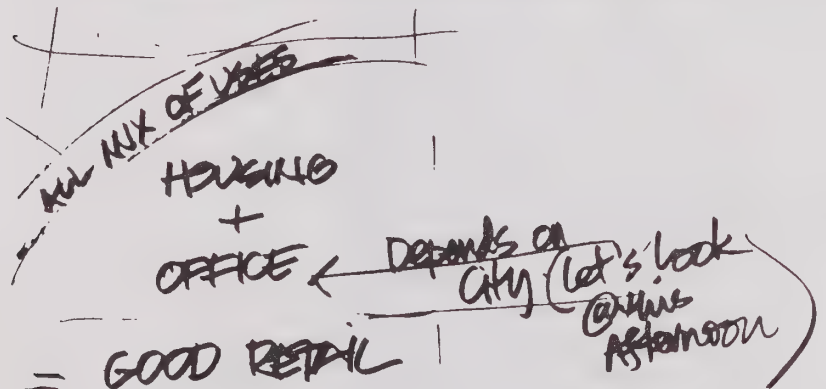 ALL MIX OF USES
HOUSING
+
OFFICE
Depends on
City (let's look
@ this
Afternoon)
= GOOD RETAIL